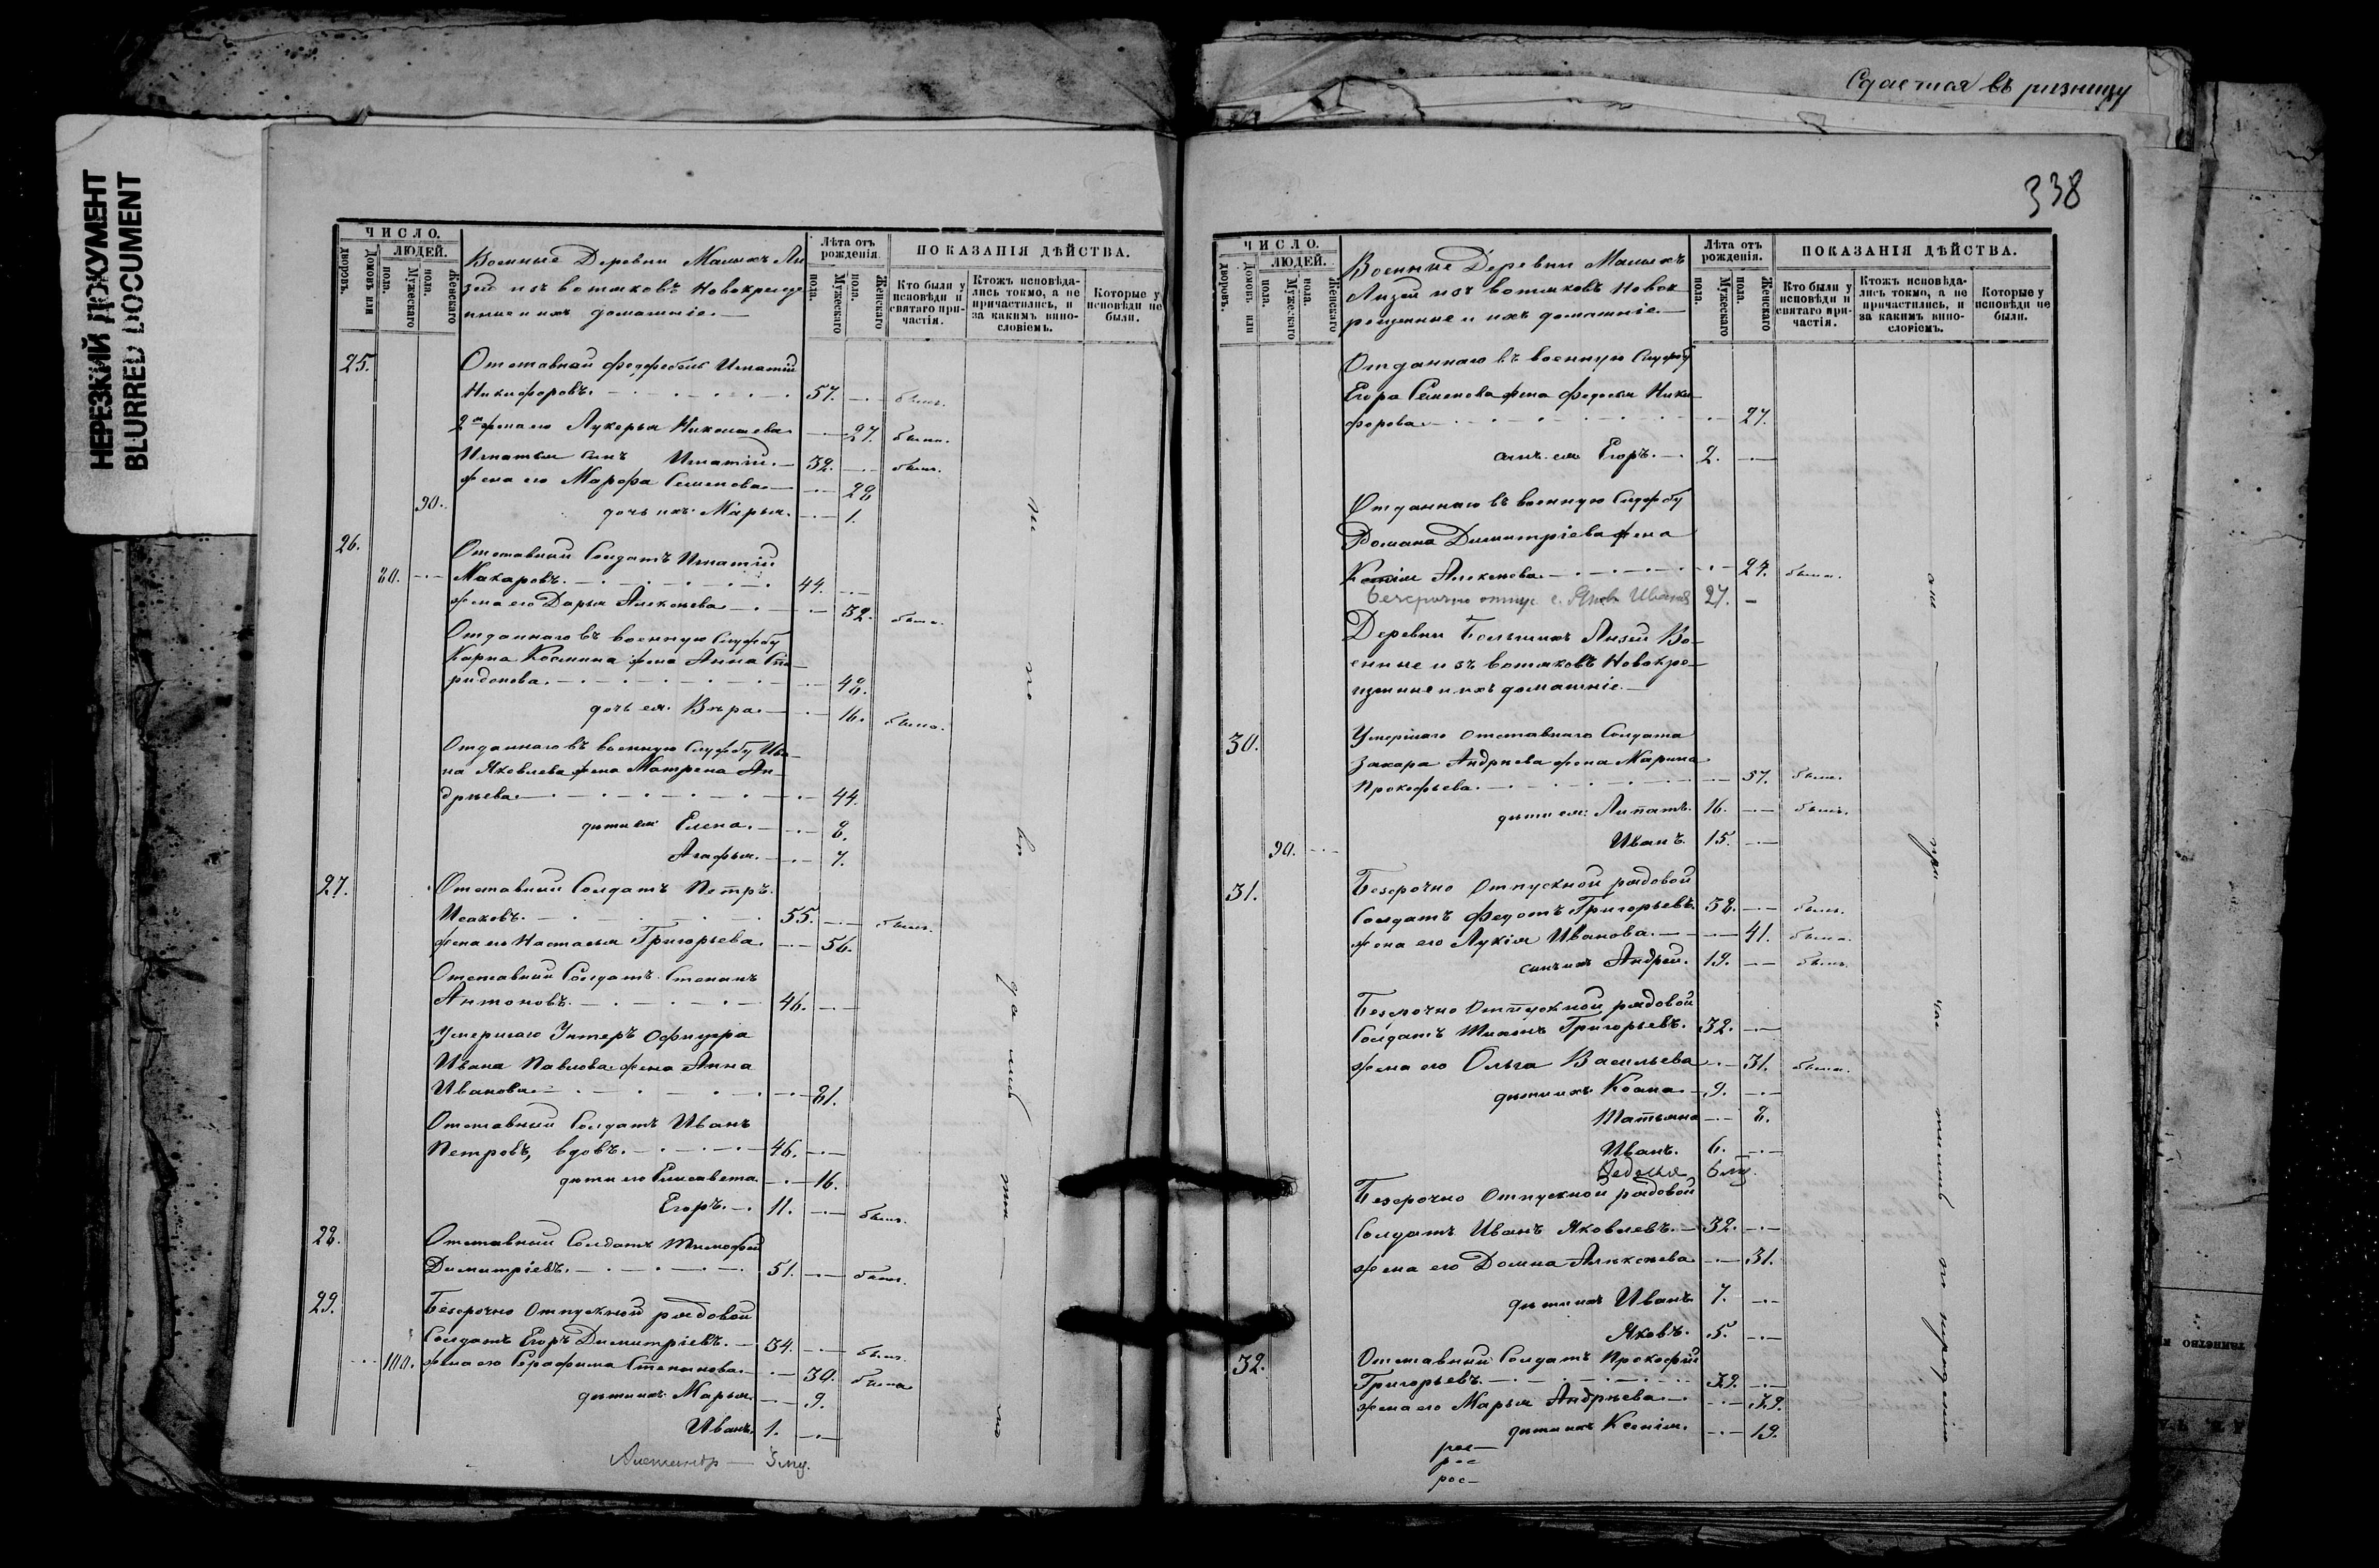 Сдается въ ризницу
НЕРЕЗКИЙ ДОКУМЕНТ
BLURRED DOCUMENT
338
ЧИСЛО.
ЛЮДЕЙ.
Домовъ или дворовъ.
Мужескаго пола.
Женскаго пола.
Военные Деревни Малыхъ Ли
зей изъ вотяковъ Новокреще
нные и ихъ домашніе.
Лѣта отъ рожденія.
Мужескаго пола.
Женскаго пола.
ПОКАЗАНІЯ ДѢЙСТВА.
Кто были у исповѣди и святаго причастія.
Ктожъ исповѣдались токмо, а не причастились, и за какимъ винословіемъ.
Которые у исповѣди не были.
25. Отставной фелдфебель Игнатій
Никифоровъ. 57. былъ.
2я жена его Лукерья Николаева 27. была.
Игнатья сынъ Игнатій. 32. былъ.
жена его Марфа Семенова 28
90. дочь ихъ Марья. 1.
26. Отставный Солдатъ Игнатій
80. Макаровъ. 44.
жена его Дарья Алексѣева 32. была.
Отданнаго въ военную Службу
Карпа Космина жена Анна Спи
ридонова. 48.
дочь ея Вѣра. 16. была.
Отданнаго въ военную Службу Ива
на Яковлева жена Матрена Ан
дрѣева 44.
дѣти ея Елена. 8.
Агафья. 7.
27. Отставный Солдатъ Петръ
Исаковъ. 55. былъ.
жена его Настасья Григорьева. 56.
Отставный Солдатъ Степанъ
Антоновъ. 46.
Умершаго Унтеръ Офицера
Ивана Павлова жена Анна
Иванова 81.
Отставный Солдатъ Иванъ
Петровъ, вдовъ. 46.
дѣти его Елисавета. 16.
Егоръ. 11. былъ.
28. Отставный Солдатъ Тимофей
Димитріевъ. 51. былъ.
29. Безсрочно Отпускной рядовой
Солдатъ Егоръ Димитріевъ. 34. былъ.
100. жена его Серафима Степанова 30. была
дѣти ихъ Марья 9.
Иванъ. 1.
ЧИСЛО.
ЛЮДЕЙ.
Домовъ или дворовъ.
Мужескаго пола.
Женскаго пола.
Военные Деревни Малыхъ
Лизей изъ вотяковъ Новок
рещенные и ихъ домашніе.
Лѣта отъ рожденія.
Мужескаго пола.
Женскаго пола.
ПОКАЗАНІЯ ДѢЙСТВА.
Кто были у исповѣди и святаго причастія.
Ктожъ исповѣдались токмо, а не причастились, и за какимъ винословіемъ.
Которые у исповѣди не были.
Отданнаго въ военную Службу
Егора Семенова жена Федосья Ники
форова 27.
сынъ ея Егоръ. 2.
Отданнаго въ военную Службу
Романа Димитріева жена
Ксенія Алексѣева 24. была.
Безсрочно отпус. с. Яковъ Ивановъ 27.
Деревни Большихъ Лизей Во
енные изъ вотяковъ Новокре
щенные и ихъ домашніе.
30. Умершаго отставнаго Солдата
Захара Андрѣева жена Марина
Прокофьева. 57. была.
дѣти ея: Липатъ. 16. былъ.
90. Иванъ. 15.
31. Безсрочно Отпускной рядовой
Солдатъ Федотъ Григорьевъ. 38. былъ.
жена его Лукія Иванова. 41. была.
сынъ ихъ Андрей. 19. былъ.
Безсрочно Отпускной рядовой
Солдатъ Григорьевъ. 32.
жена его Ольга Васильева 31. была.
дѣти ихъ 9.
Татьяна 8.
Иванъ. 6.
Безсрочно Отпускной рядовой
Солдатъ Иванъ Яковлевъ. 32.
жена его Домна Алексѣева 31.
дѣти ихъ Иванъ 7.
Яковъ. 5.
32. Отставный Солдатъ Прокофій
Григорьевъ. 39.
жена его Марья Андрѣева 39.
дѣти ихъ Ксенія. 19.